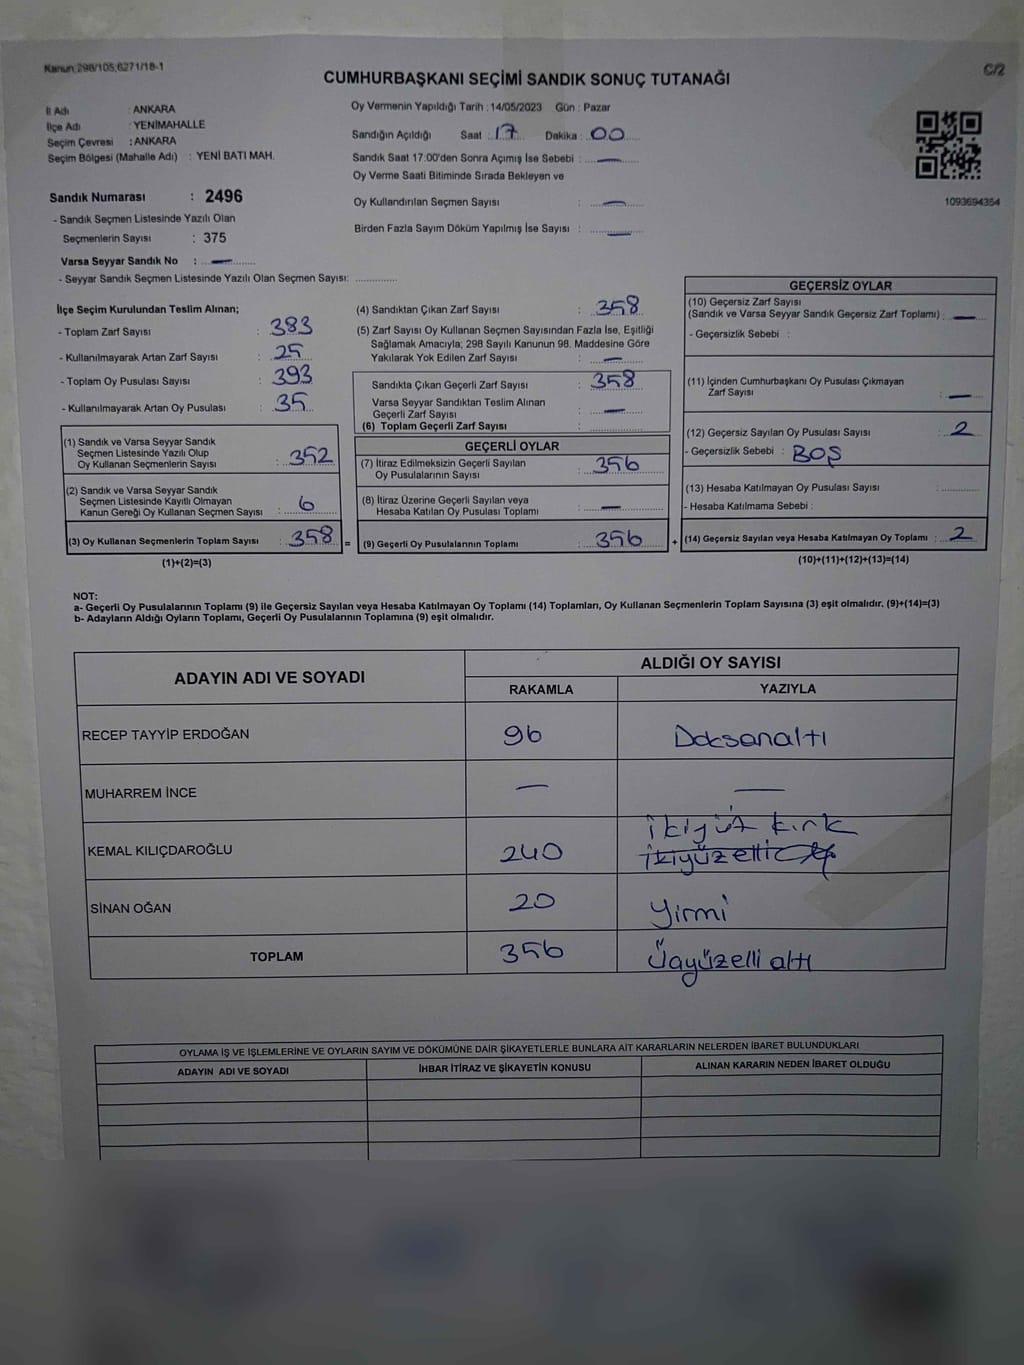 Kanun:298/105,6271/18-1
C/2
CUMHURBAŞKANI SEÇİMİ SANDIK SONUÇ TUTANAĞI
İl Adı : ANKARA
İlçe Adı : YENİMAHALLE
Seçim Çevresi : ANKARA
Seçim Bölgesi (Mahalle Adı) : YENİ BATI MAH.
Sandık Numarası : 2496
- Sandık Seçmen Listesinde Yazılı Olan
Seçmenlerin Sayısı : 375
Varsa Seyyar Sandık No : —
- Seyyar Sandık Seçmen Listesinde Yazılı Olan Seçmen Sayısı: ..............
Oy Vermenin Yapıldığı Tarih : 14/05/2023 Gün : Pazar
Sandığın Açıldığı Saat : 17 Dakika : 00
Sandık Saat 17:00'den Sonra Açımış İse Sebebi : —
Oy Verme Saati Bitiminde Sırada Bekleyen ve
Oy Kullandırılan Seçmen Sayısı : —
Birden Fazla Sayım Döküm Yapılmış İse Sayısı : —
1093694354
İlçe Seçim Kurulundan Teslim Alınan;
- Toplam Zarf Sayısı : 383
- Kullanılmayarak Artan Zarf Sayısı : 25
- Toplam Oy Pusulası Sayısı : 393
- Kullanılmayarak Artan Oy Pusulası : 35
(1) Sandık ve Varsa Seyyar Sandık
Seçmen Listesinde Yazılı Olup
Oy Kullanan Seçmenlerin Sayısı : 352
(2) Sandık ve Varsa Seyyar Sandık
Seçmen Listesinde Kayıtlı Olmayan
Kanun Gereği Oy Kullanan Seçmen Sayısı : 6
(3) Oy Kullanan Seçmenlerin Toplam Sayısı : 358 =
(1)+(2)=(3)
(4) Sandıktan Çıkan Zarf Sayısı : 358
(5) Zarf Sayısı Oy Kullanan Seçmen Sayısından Fazla İse, Eşitliği
Sağlamak Amacıyla; 298 Sayılı Kanunun 98. Maddesine Göre
Yakılarak Yok Edilen Zarf Sayısı : —
Sandıkta Çıkan Geçerli Zarf Sayısı : 358
Varsa Seyyar Sandıktan Teslim Alınan
Geçerli Zarf Sayısı : —
(6) Toplam Geçerli Zarf Sayısı : ..............
GEÇERLİ OYLAR
(7) İtiraz Edilmeksizin Geçerli Sayılan
Oy Pusulalarının Sayısı : 356
(8) İtiraz Üzerine Geçerli Sayılan veya
Hesaba Katılan Oy Pusulası Toplamı : —
(9) Geçerli Oy Pusulalarının Toplamı : 356 +
GEÇERSİZ OYLAR
(10) Geçersiz Zarf Sayısı
(Sandık ve Varsa Seyyar Sandık Geçersiz Zarf Toplamı) : —
- Geçersizlik Sebebi :
(11) İçinden Cumhurbaşkanı Oy Pusulası Çıkmayan
Zarf Sayısı : —
(12) Geçersiz Sayılan Oy Pusulası Sayısı : 2
- Geçersizlik Sebebi : BOŞ
(13) Hesaba Katılmayan Oy Pusulası Sayısı : ..............
- Hesaba Katılmama Sebebi :
(14) Geçersiz Sayılan veya Hesaba Katılmayan Oy Toplamı : 2
(10)+(11)+(12)+(13)=(14)
NOT:
a- Geçerli Oy Pusulalarının Toplamı (9) ile Geçersiz Sayılan veya Hesaba Katılmayan Oy Toplamı (14) Toplamları, Oy Kullanan Seçmenlerin Toplam Sayısına (3) eşit olmalıdır. (9)+(14)=(3)
b- Adayların Aldığı Oyların Toplamı, Geçerli Oy Pusulalarının Toplamına (9) eşit olmalıdır.
ADAYIN ADI VE SOYADI
ALDIĞI OY SAYISI
RAKAMLA YAZIYLA
RECEP TAYYİP ERDOĞAN 96 Doksanaltı
MUHARREM İNCE — —
ikiyüz kırk
KEMAL KILIÇDAROĞLU 240 ikiyüzelli
SİNAN OĞAN 20 Yirmi
TOPLAM 356 Üçyüzelli altı
OYLAMA İŞ VE İŞLEMLERİNE VE OYLARIN SAYIM VE DÖKÜMÜNE DAİR ŞİKAYETLERLE BUNLARA AİT KARARLARIN NELERDEN İBARET BULUNDUKLARI
ADAYIN ADI VE SOYADI İHBAR İTİRAZ VE ŞİKAYETİN KONUSU ALINAN KARARIN NEDEN İBARET OLDUĞU